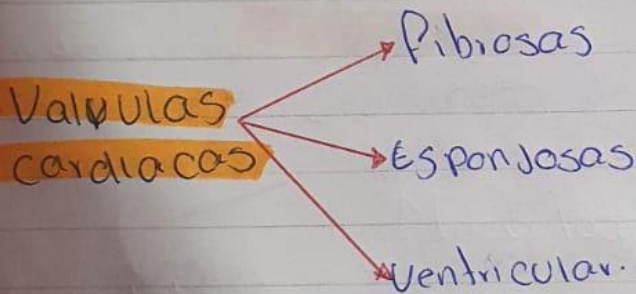 Valvulas
cardiacas
Fibrosas
Esponjosas
Ventricular.